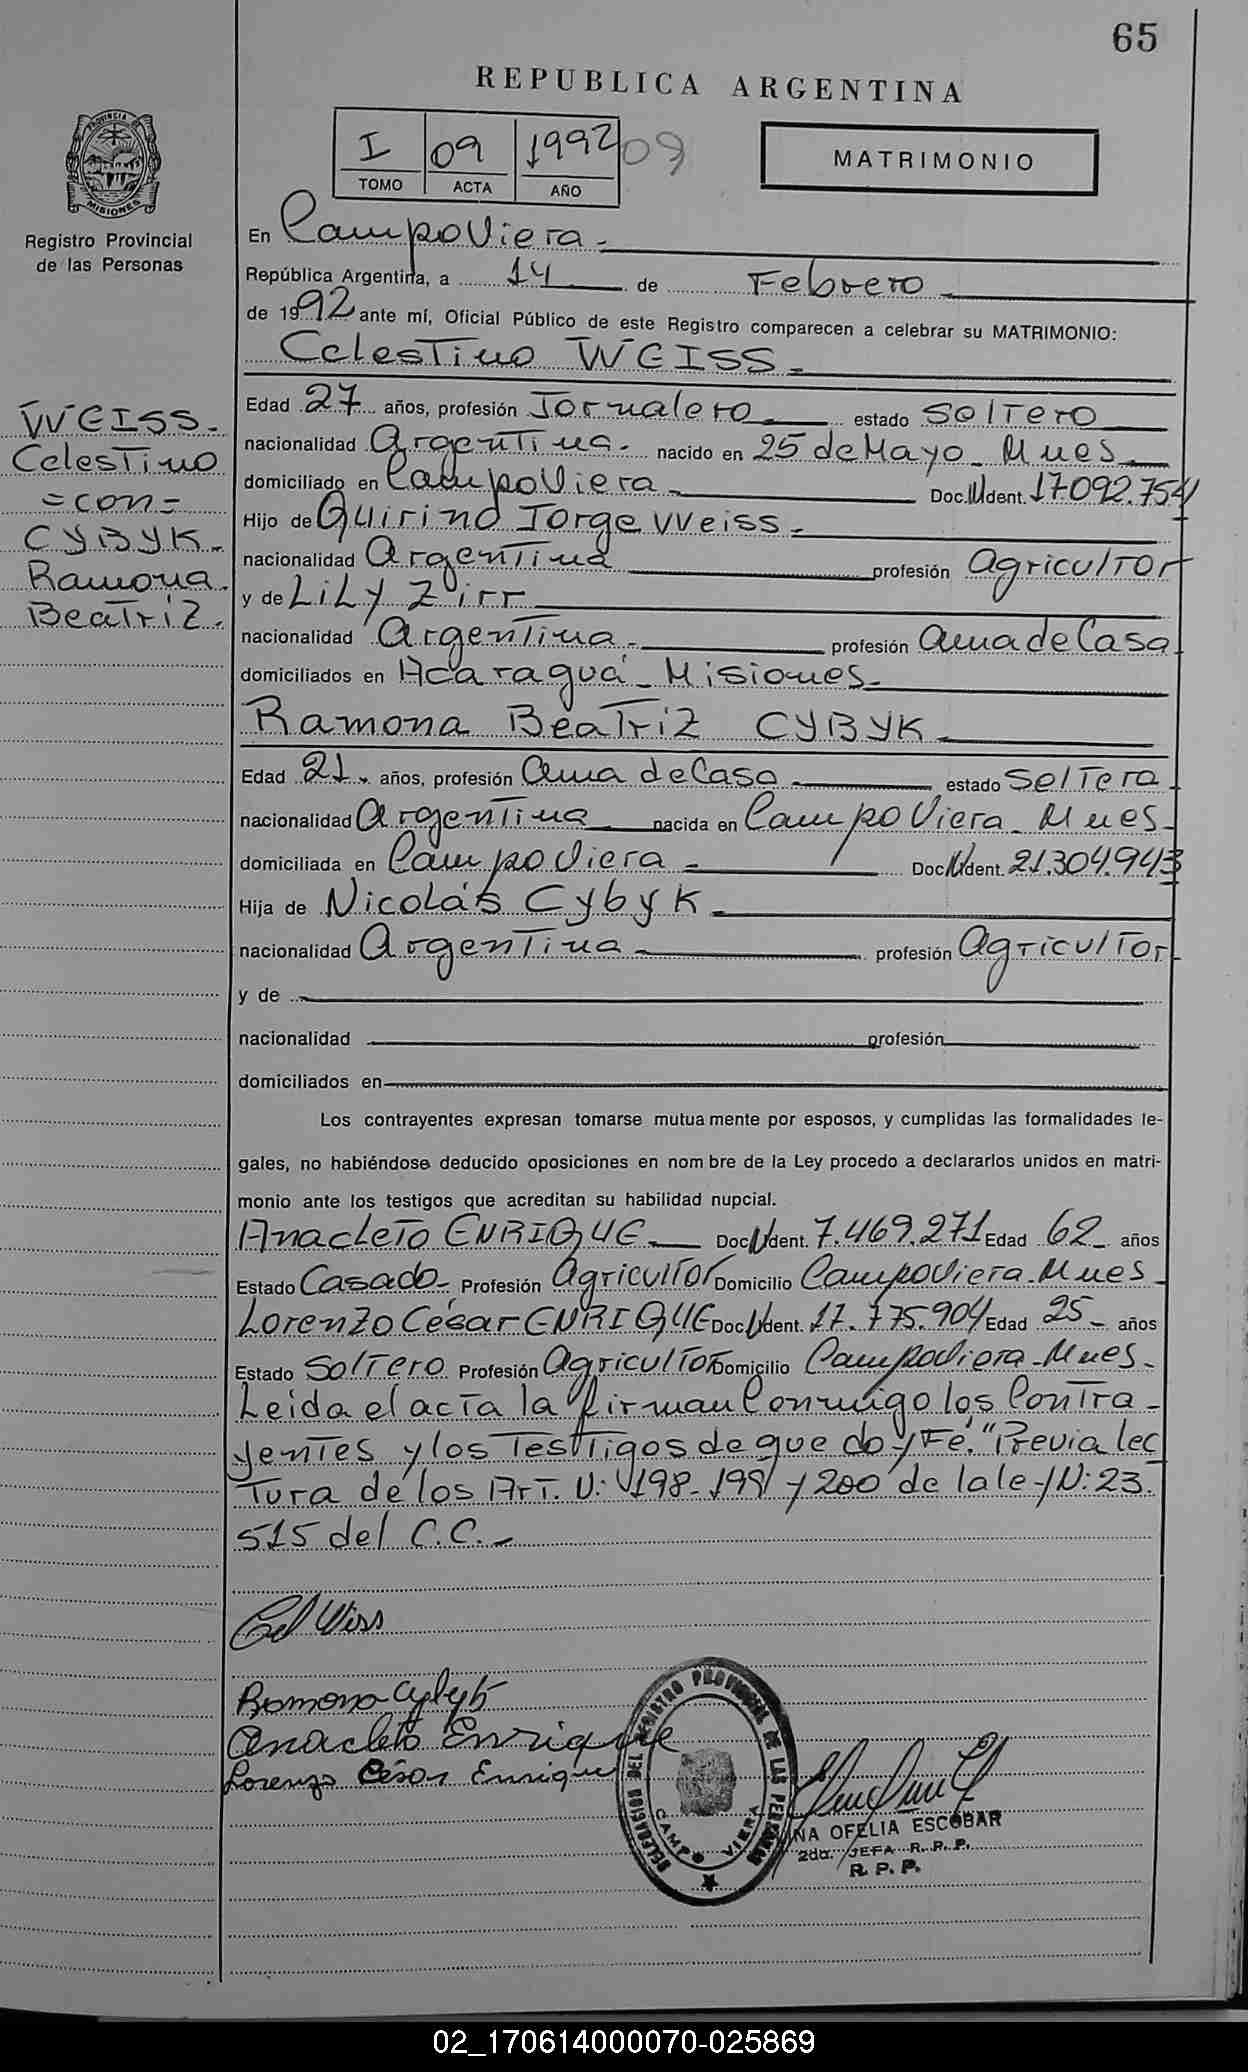 65
REPUBLICA ARGENTINA
I 09 1992 09
TOMO ACTA AÑO
MATRIMONIO
PROVINCIA DE MISIONES
Registro Provincial
de las Personas
En CampoViera.-
República Argentina, a 14 de Febrero
de 1992 ante mí, Oficial Público de este Registro comparecen a celebrar su MATRIMONIO:
Celestino WEISS.-
WEISS.-
Celestino
=con=
CYBYK.-
Ramona
Beatriz.
Edad 27 años, profesión Jornalero estado Soltero
nacionalidad Argentina.- nacido en 25 de Mayo - Mnes
domiciliado en CampoViera.- Doc. N Ident. 17092.754
Hijo de Quirino Jorge Weiss.-
nacionalidad Argentina profesión Agricultor
y de LiLy Zirr
nacionalidad Argentina.- profesión Ama de Casa
domiciliados en Acaraguá - Misiones.-
Ramona Beatriz CYBYK.-
Edad 21.- años, profesión Ama de Casa.- estado Soltera
nacionalidad Argentina nacida en CampoViera - Mnes-
domiciliada en CampoViera.- Doc N Ident. 21.304.943
Hija de Nicolás Cybyk.-
nacionalidad Argentina.- profesión Agricultor
y de
nacionalidad profesión
domiciliados en
Los contrayentes expresan tomarse mutua mente por esposos, y cumplidas las formalidades le-
gales, no habiéndose deducido oposiciones en nom bre de la Ley procedo a declararlos unidos en matri-
monio ante los testigos que acreditan su habilidad nupcial.
Anacleto ENRIQUE.- Doc N Ident. 7.469.271 Edad 62- años
Estado Casado- Profesión Agricultor Domicilio CampoViera - Mnes-
Lorenzo César ENRIQUE Doc N Ident. 17.775.904 Edad 25- años
Estado Soltero Profesión Agricultor Domicilio CampoViera - Mnes-
Leida el acta la firman Conmigo los Contra-
yentes y los Testigos de que doy Fé. "Previa lec
Tura de los ArT. N: 198-199 y 200 de la ley N: 23.
515 del C.C.-
Cel Wiss
Ramona Cybyk
Anacleto Enrique
Lorenzo César Enrique
DELEGACION DEL REGISTRO PROVINCIAL DE LAS PERSONAS
CAMPO VIERA
NA OFELIA ESCOBAR
2da. JEFA R. P. P.
R. P. P.
02_170614000070-025869